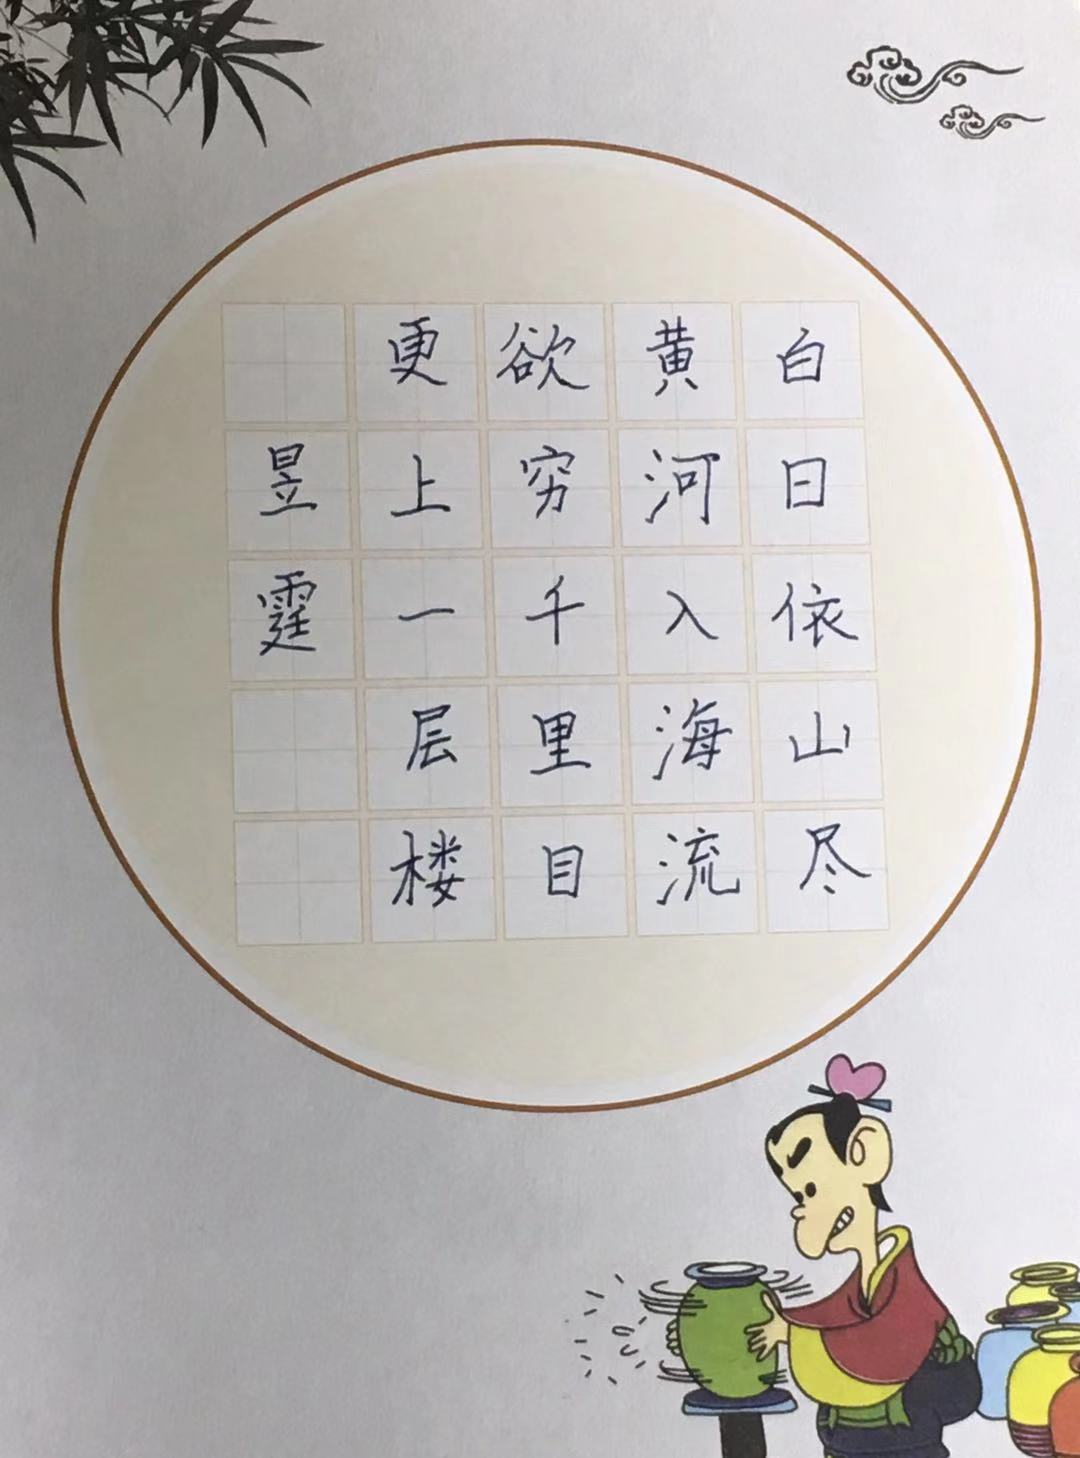 白日依山尽
黄河入海流
欲穷千里目
更上一层楼
昱霆